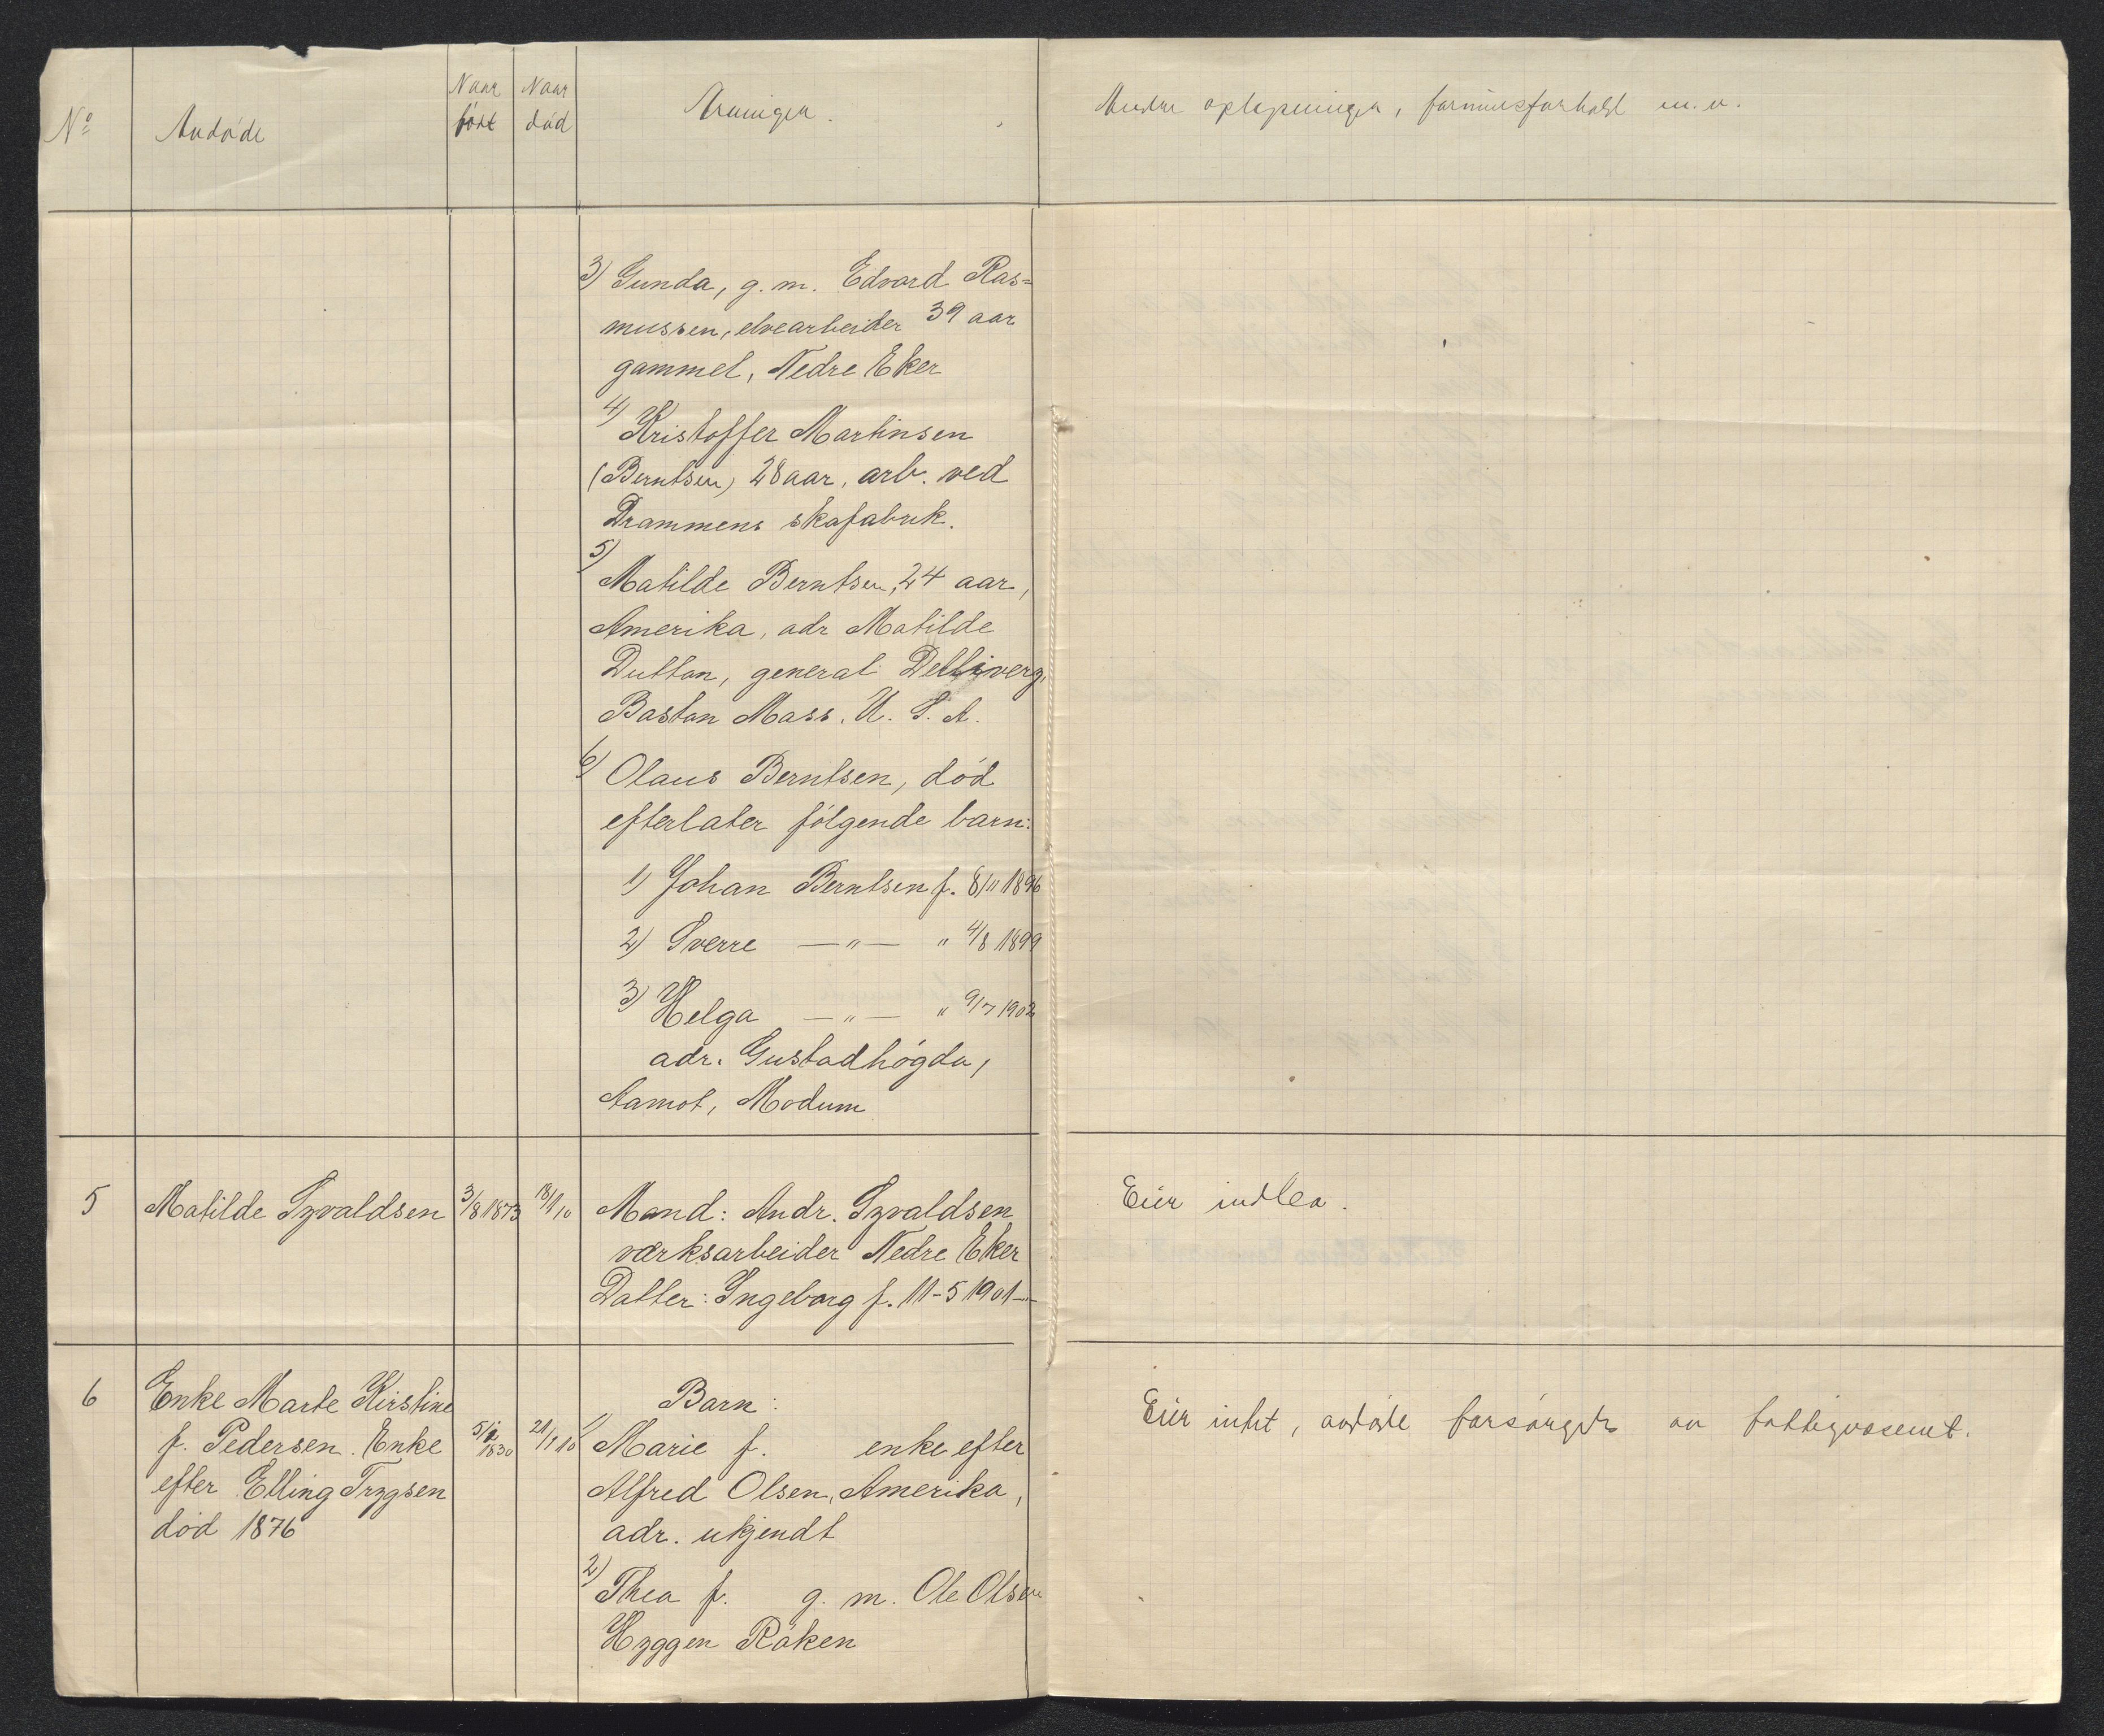 No
Avdøde
Naar født
Naar død
Arvinger.
Andre oplysninger, formuesforhold m. v.
3) Gunda, g. m. Edvard Ras=
mussen, elvearbeider 39 aar
gammel, Nedre Eker
4) Kristoffer Martinsen
(Berntsen) 28 aar, arb. ved
Drammens skofabrik.
5)
Matilde Berntsen, 24 aar,
Amerika, adr Matilde
Dutton, general
Boston Mass. U. S. A.
6) Olaus Berntsen, død
efterlater følgende barn:
1) Johan Berntsen f. 8/11 1896
2) Sverre —"— " 4/8 1899
3) Helga —"— " 9/7 1902
adr. Gustadhøgda,
Aamot, Modum
5 Matilde Syvaldsen 3/8 1873 18/1 10 Mand: Andr. Syvaldsen Eier intet.
værksarbeider Nedre Eker
Datter: Ingeborg f. 11-5 1901 —
6 Enke Marte Kirstine Barn: Eier intet, avdøde forsørgedes av fattigvæsenet.
f. Pedersen. Enke 1830 21/1 10 1) Marie f. enke efter
efter Elling Trygsen Alfred Olsen, Amerika,
død 1876 adr. ukjendt
2) Thea f. g. m. Ole Olsen
Hyggen Røken